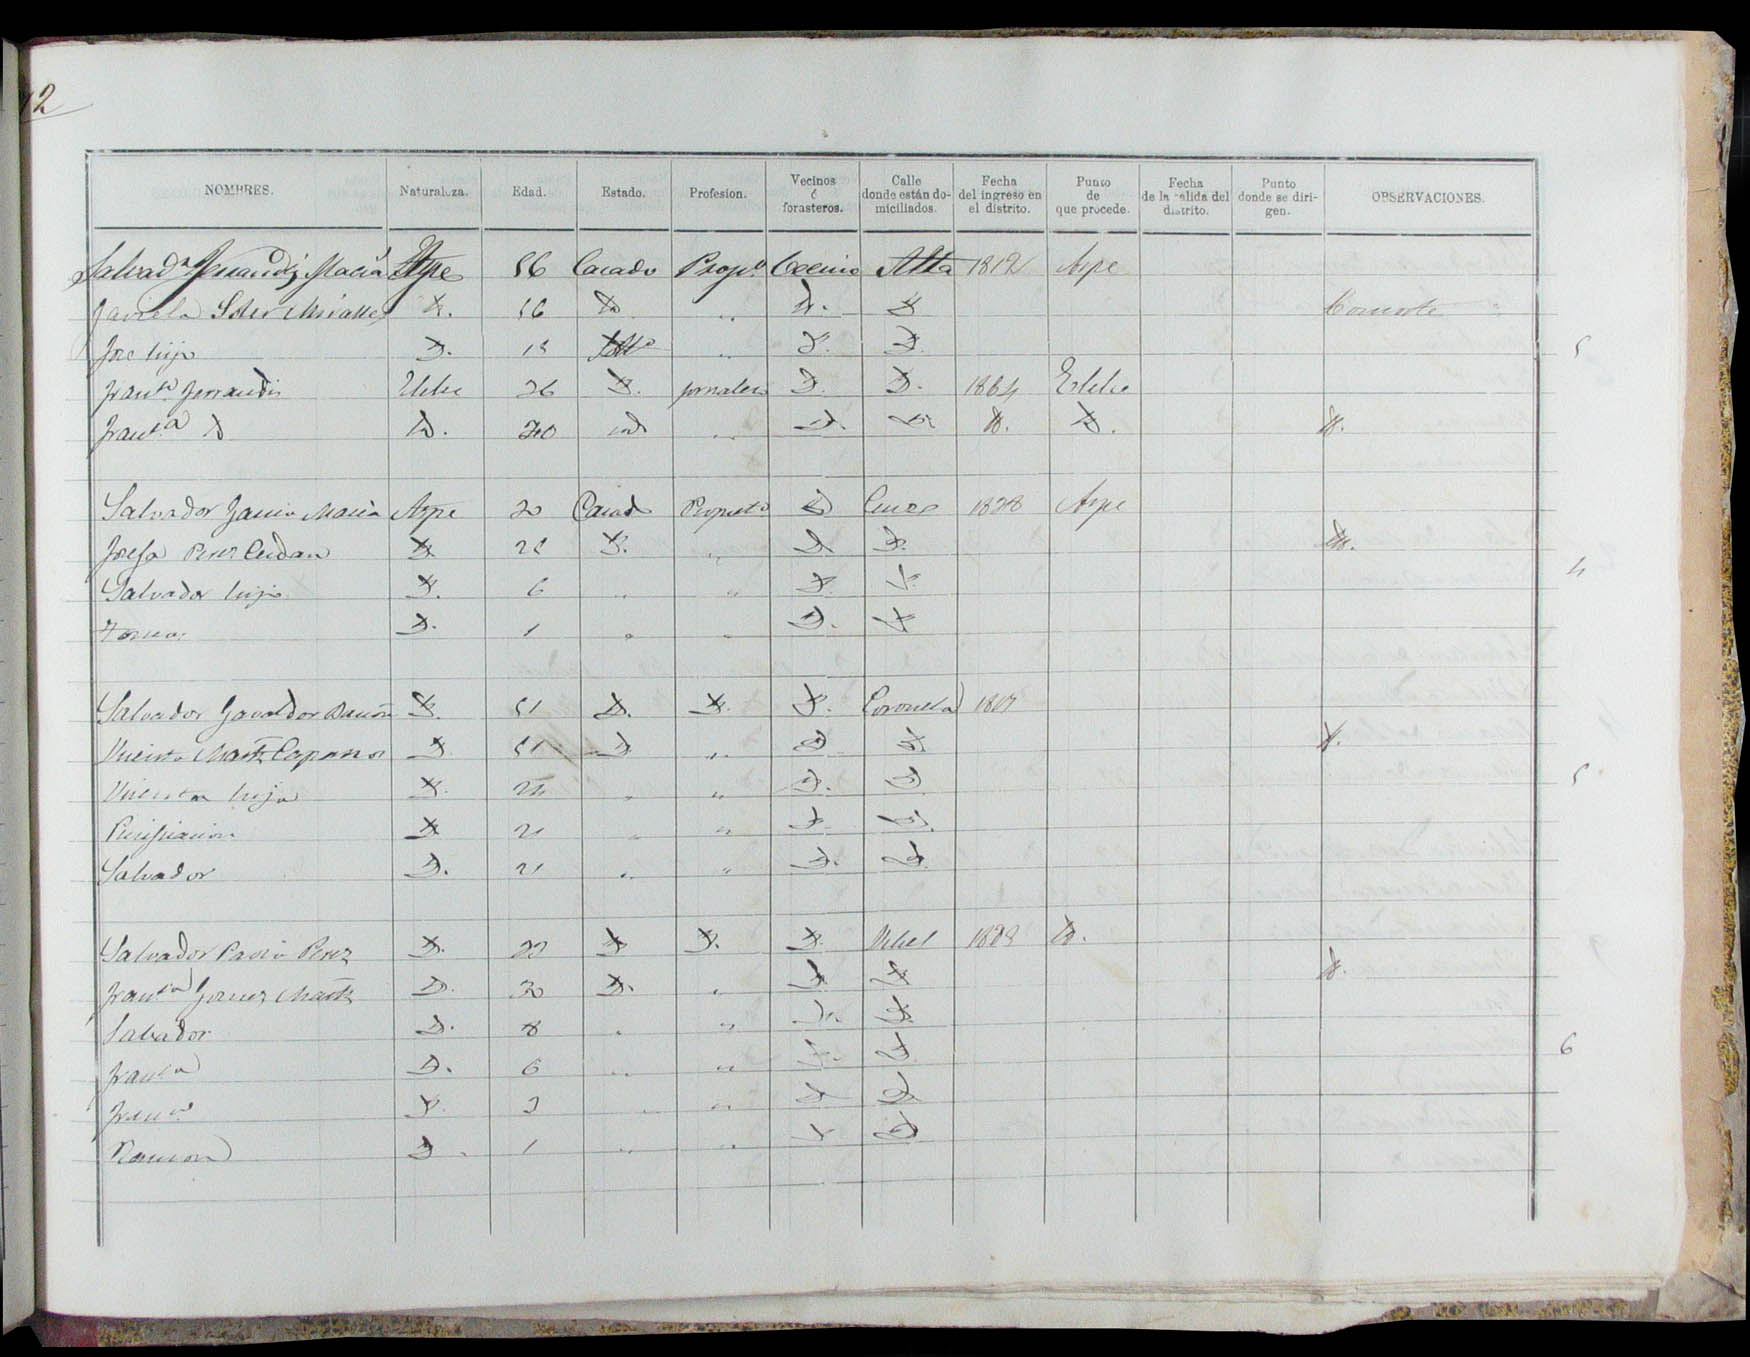 12
NOMBRES. Naturaleza. Edad. Estado. Profesion. Vecinos ó forasteros. Calle donde están domiciliados. Fecha del ingreso en el distrito. Punto de que procede. Fecha de la salida del distrito. Punto donde se dirigen. OBSERVACIONES.
Salvadr Ferrandiz Maciá Aspe 56 Casado Propo Vecino Alta 1812 Aspe
Soler Miralles D. 56 D. " D. D. Consorte
Jose hijo D. 18 Solto " D. D. 5
Franco Ferrandis Elche 26 D. jornalero D. D. 1864 Elche
Franca D D. 20 " D. D. D. D. D.
Salvador Garcia Maciá Aspe 30 Casado Propieto D Cruz 1828 Aspe
Josefa Perez Cerdan D. 28 D. " D. D. D.
Salvador hijo D. 6 " " D. D. 4
Tomas D. 1 " " D. D.
Salvador Gavaldor D. 51 D. D. D. Coronela 1807
Vicenta Martz D. 51 D. " D. D. D.
Vicenta hija D. 24 " " D. D. 5
Purificacion D. 21 " " D. D.
Salvador D. 21 " " D. D.
Salvador Pavia Perez D. 33 D. D. D. 1828 D.
Franca Gomez Martz D. 30 D. " D. D. D.
Salvador D. 8 " " D. D.
Franca D. 6 " " D. D. 6
Franco D. 3 " " D. D.
Ramon D. 1 " " D. D.